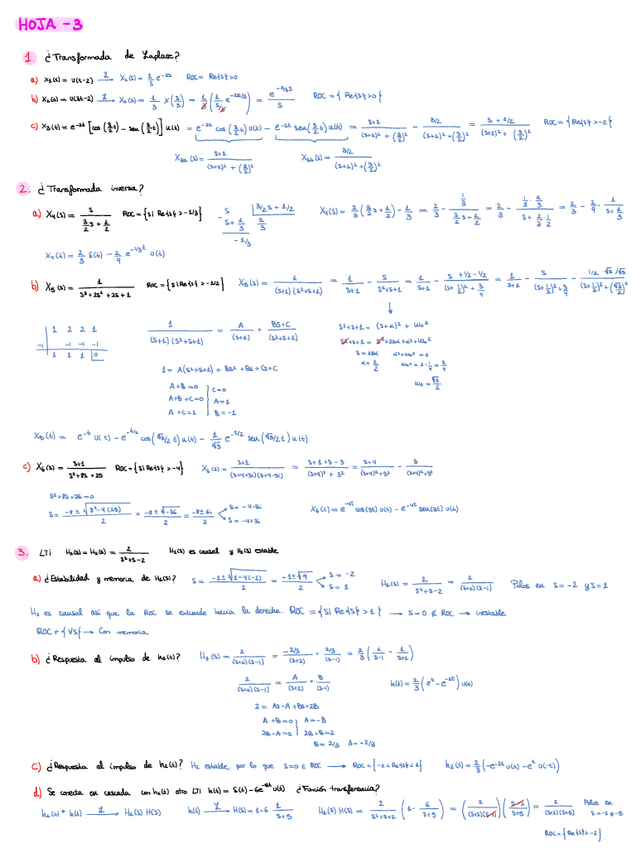 HOJA - 3
1. ¿Transformada de Laplace?
a) x₁(t) = u(t-2) →ℒ X₁(s) = 1/s e^{-2s} ROC = Re{s}>0
b) x₂(t) = u(3t-2) →ℒ X₂(s) = 1/3 X(s/3) = 1/3 (1/(s/3) e^{-2s/3}) = e^{-2/3 s}/s ROC = {Re{s}>0}
c) x₃(t) = e^{-2t} [cos(3/2 t) - sen(3/2 t)] u(t) = e^{-2t} cos(3/2 t) u(t) - e^{-2t} sen(3/2 t) u(t) = (s+1)/((s+2)²+(3/2)²) - (3/2)/((s+2)²+(3/2)²) = (s+1/2)/((s+2)²+(3/2)²) ROC = {Re{s}>-2}
(s) = (s+1)/((s+2)²+(3/2)²) (s) = (3/2)/((s+2)²+(3/2)²)
2. ¿Transformada inversa?
a) X₄(s) = s/(3/2 s + 1/2) ROC = {s| Re{s}>-1/3} s |3/2 s + 1/2 X₄(s) = 2/3
-s + 1/3 2/3
-1/3
x₄(t) = 2/3 δ(t) - 2/9 e^{-1/3 t} u(t)
b) X₅(s) = 1/(s³+2s²+2s+1) ROC = {s| Re{s}>-1/2} X₅(s) = 1/((s+1)(s²+s+1)) = 1/(s+1) - s/(s²+s+1) = 1/(s+1) - (s+1/2-1/2)/((s+1/2)²+3/4)
1 2 2 1
-1 -1 -1 -1
1 1 1 0
1/((s+1)(s²+s+1)) = A/(s+1) + (Bs+C)/(s²+s+1)
s²+s+1 = (s+α)² + ω₀²
s²+s+1 = s²+2sα+α²+ω₀²
s = 2sα α²+ω₀² = 1
α = 1/2 ω₀² = 1-1/4 = 3/4
ω₀ = √3/2
1 = A(s²+s+1) + Bs² + Bs + Cs + C
A+B=0 C=0
A+B+C=0 A=1
A+C=1 B=-1
x₅(t) = e^{-t} u(t) - e^{-t/2} cos(√3/2 t) u(t) - 1/√3 sen(√3/2 t) u(t)
c) X₆(s) = (s+1)/(s²+8s+25) ROC = {s| Re{s}>-4} X₆(s) = (s+1)/((s+4+3i)(s+4-3i)) = (s+1+3-3)/((s+4)²+3²) = (s+4)/((s+4)²+3²) - 3/((s+4)²+3²)
s²+8s+25=0
s = (-8±√(8²-4(25)))/2 = (-8±√-36)/2 = (-8±6i)/2 s = -4-3i
s = -4+3i
x₆(t) = e^{-4t} cos(3t) u(t) - e^{-4t} sen(3t) u(t)
3. LTI H₁(s) = H₂(s) = 2/(s²+s-2) H₁(s) es causal y H₂(s) estable
a) ¿Estabilidad y memoria de H₁(s)? s = (-1±√(1-4(-2)))/2 = (-1±√9)/2 s = -2
s = 1
H₁(s) = 2/(s²+s-2) = 2/((s+2)(s-1)) Polos en s = -2 y s = 1
H₁ es causal así que la ROC se extiende hacia la derecha. ROC = {s| Re{s}>1} → s=0 ∉ ROC → inestable
ROC ≠ {∀s} → Con memoria
b) ¿Respuesta al impulso de h₁(t)? H₁(s) = 2/((s+2)(s-1)) = (-2/3)/(s+2) + (2/3)/(s-1) = 2/3 (1/(s-1) - 1/(s+2))
2/((s+2)(s-1)) = A/(s+2) + B/(s-1) h(t) = 2/3 (e^{t} - e^{-2t}) u(t)
2 = As - A + Bs + 2B
A+B=0 A=-B
2B-A=2 2B+B=2
B=2/3 A=-2/3
c) ¿Respuesta al impulso de h₂(t)? H₂ estable, por lo que s=0 ∈ ROC → ROC = {-2<Re{s}<1} h₂(t) = 2/3 (-e^{-2t} u(t) - e^{t} u(-t))
d) Se conecta en cascada con h₁(t) otro LTI h(t) = δ(t) - 6e^{-5t} u(t) ¿Función transferencia?
h₁(t) * h(t) →ℒ H₁(s) H(s) h(t) →ℒ H(s) = 1-6 1/(s+5) H₁(s) H(s) = 2/(s²+s+2) (1 - 6/(s+5)) = (2/((s+2)(s-1))) ((s-1)/(s+5)) = 2/((s+2)(s+5)) Polos en s=-2 y -5
ROC = {Re{s}>-2}